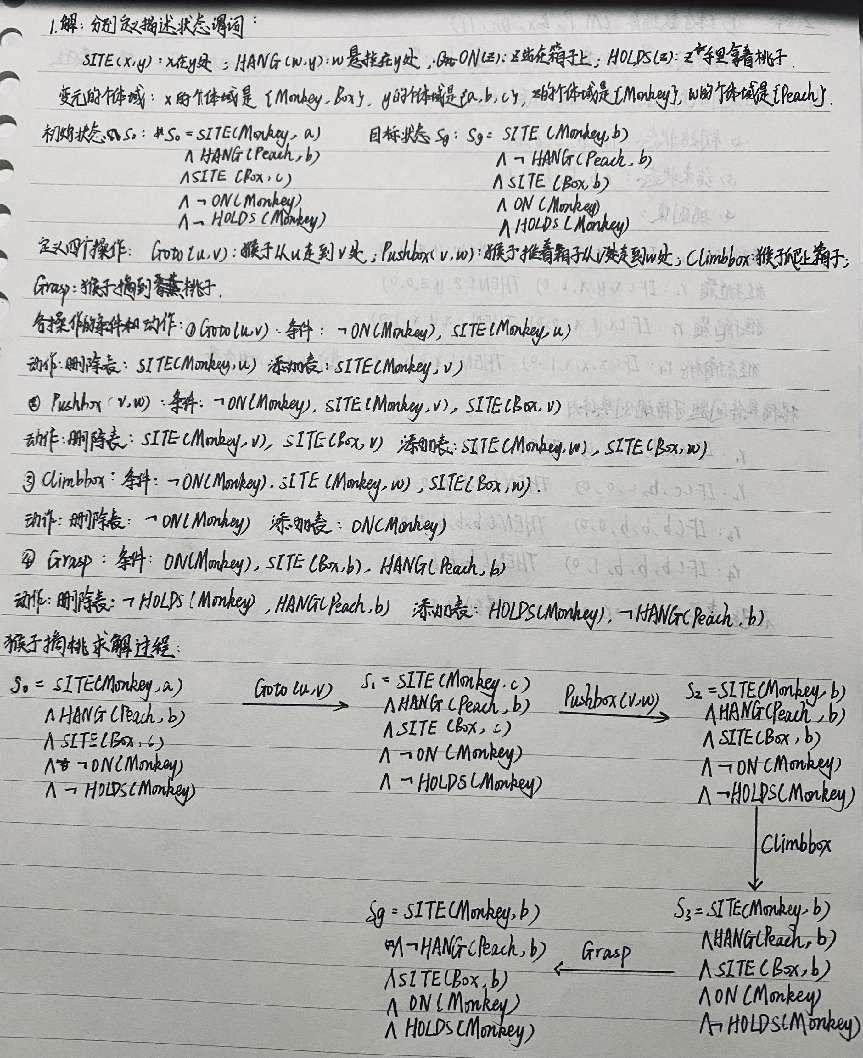 1.解：分别定义描述状态谓词：
SITE(x,y)：x在y处；HANG(w,y)：w悬挂在y处，ON(z)：z站在箱子上；HOLDS(z)：z手里拿着桃子.
变元的个体域：x的个体域是{Monkey, Box}，y的个体域是{a,b,c}，z的个体域是{Monkey}，w的个体域是{Peach}.
初始状态S₀：S₀ = SITE(Monkey, a)
∧ HANG(Peach, b)
∧ SITE (Box, c)
∧ ¬ ON(Monkey)
∧ ¬ HOLDS(Monkey)
目标状态Sg：Sg = SITE (Monkey, b)
∧ ¬ HANG(Peach, b)
∧ SITE (Box, b)
∧ ON (Monkey)
∧ HOLDS (Monkey)
定义四个操作：Goto(u,v)：猴子从u走到v处；Pushbox(v,w)：猴子推着箱子从v处走到w处；Climbbox：猴子爬上箱子；
Grasp：猴子摘到桃子.
各操作的条件和动作：①Goto(u,v)：条件：¬ON(Monkey), SITE(Monkey, u)
动作：删除表：SITE(Monkey, u) 添加表：SITE(Monkey, v)
② Pushbox (v,w)：条件：¬ON(Monkey), SITE(Monkey, v), SITE(Box, v)
动作：删除表：SITE(Monkey, v), SITE(Box, v) 添加表：SITE(Monkey, w), SITE(Box, w)
③ Climbbox：条件：¬ON(Monkey), SITE (Monkey, w), SITE(Box, w).
动作：删除表：¬ON(Monkey) 添加表：ON(Monkey)
④ Grasp：条件：ON(Monkey), SITE (Box, b), HANG(Peach, b)
动作：删除表：¬HOLDS (Monkey), HANG(Peach, b) 添加表：HOLDS(Monkey), ¬HANG(Peach, b)
猴子摘桃求解过程：
S₀ = SITE(Monkey, a)
∧ HANG(Peach, b)
∧ SITE(Box, c)
∧ ¬ ON(Monkey)
∧ ¬ HOLDS(Monkey)
Goto(u,v)
S₁ = SITE(Monkey, c)
∧ HANG(Peach, b)
∧ SITE (Box, c)
∧ ¬ ON (Monkey)
∧ ¬ HOLDS(Monkey)
Pushbox(v,w)
S₂ = SITE(Monkey, b)
∧ HANG(Peach, b)
∧ SITE(Box, b)
∧ ¬ ON (Monkey)
∧ ¬ HOLDS(Monkey)
Climbbox
S₃ = SITE(Monkey, b)
∧ HANG(Peach, b)
∧ SITE (Box, b)
∧ ON (Monkey)
∧ ¬ HOLDS(Monkey)
Grasp
Sg = SITE(Monkey, b)
∧ ¬ HANG(Peach, b)
∧ SITE(Box, b)
∧ ON (Monkey)
∧ HOLDS(Monkey)